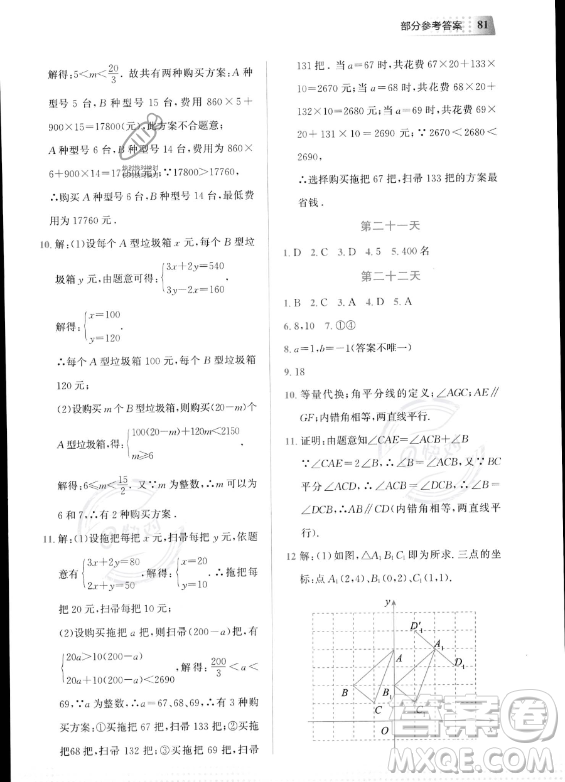 部分参考答案 81
解得:5<m<20/3. 故共有两种购买方案:A种
型号 5 台,B 种型号 15 台,费用 860×5+
900×15=17800(元),此方案不合题意;
A种型号 6 台,B 种型号 14 台,费用 860×
6+900×14=17760(元),∵17760<17800,
∴购买 A 种型号 6 台,B 种型号 14 台,费
用为 17760 元.
10. 解:(1)设每个 A 型垃圾箱 x 元,每个 B 型垃
圾箱 y 元,由题意可得:{3x+2y=540
x+y=220
解得:{x=100
y=120
∴每个 A 型垃圾箱 100 元,每个 B 型垃圾箱
120 元;
(2)设购买 m 个 B 型垃圾箱,则购买(20-m)个
A 型垃圾箱,{100(20-m)+120m<2150
m≥6
解得:6≤m<15/2. ∵m 为整数,∴m 可以为
6 和 7,有 2 种购买方案.
11. 解:(1)设拖把每把 x 元,扫帚每把 y 元,依题
意有{3x+2y=80
2x+y=50 解得:{x=20
y=10 .∴拖把每把
20 元,扫帚每把 10 元;
(2)设购买拖把 a 把,则扫帚(200-a)把,有
{20a>10(200-a)
20a+10(200-a)<2690 解得:200/3<a<
69,∵a 为整数,∴a=67,68,69,有 3 种购买
方案:①买拖把 67 把,扫帚 133 把;②买拖
把68 把,扫帚 132 把;③买拖把 69 把,扫帚
131 把. 当 a=67 时,共花费 67×20+133×
10=2670 元;当 a=68 时,共花费 68×20+
132×10=2680 元;当 a=69 时,共花费 69×
20+131×10=2690 元;∵2670<2680<
2690,
∴选择购买拖把 67 把,扫帚 133 把的方案最
省钱.
第二十一天
1. D 2. C 3. D 4. 5 5. 400 名
第二十二天
1. B 2. C 3. C 4. D 5. A
6. 8,10 7. ①④
8. a=1,b=-1(答案不唯一)
9. 18
10. 等量代换;角平分线的定义;∠AGC;AE∥
GF;内错角相等,两直线平行.
11. 证明:由题意知∠CAE=∠ACB+∠B
∵∠CAE=2∠B,∴∠ACB=∠B ∵BC
平分∠ACD,∴∠ACB=∠BCD,∴∠B=
∠BCD,∴AB∥CD(内错角相等,两直线平
行).
12. 解:(1)如图,△A1 B1 C1 即为所求. 三点的坐
标:点 A1 (2,4),B1 (0,2),C1 (1,1).
y
D′1
A
A1
B
B1
D1
C
C1
O
答案圈
MXQE.COM